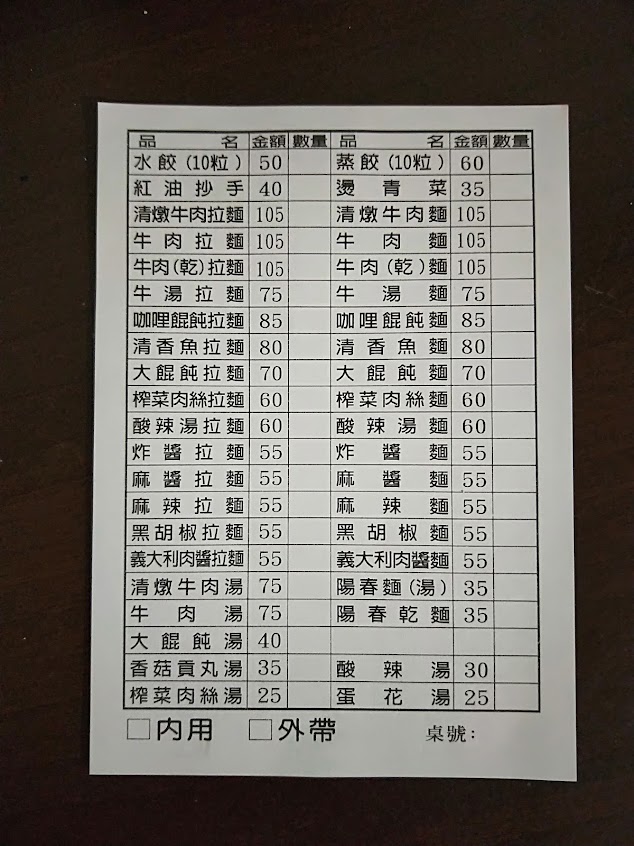 品名 金額 數量 品名 金額 數量
水餃(10粒) 50 蒸餃(10粒) 60
紅油抄手 40 燙青菜 35
清燉牛肉拉麵 105 清燉牛肉麵 105
牛肉拉麵 105 牛肉麵 105
牛肉(乾)拉麵 105 牛肉(乾)麵 105
牛湯拉麵 75 牛湯麵 75
咖哩餛飩拉麵 85 咖哩餛飩麵 85
清香魚拉麵 80 清香魚麵 80
大餛飩拉麵 70 大餛飩麵 70
榨菜肉絲拉麵 60 榨菜肉絲麵 60
酸辣湯拉麵 60 酸辣湯麵 60
炸醬拉麵 55 炸醬麵 55
麻醬拉麵 55 麻醬麵 55
麻辣拉麵 55 麻辣麵 55
黑胡椒拉麵 55 黑胡椒麵 55
義大利肉醬拉麵 55 義大利肉醬麵 55
清燉牛肉湯 75 陽春麵(湯) 35
牛肉湯 75 陽春乾麵 35
大餛飩湯 40
香菇貢丸湯 35 酸辣湯 30
榨菜肉絲湯 25 蛋花湯 25
□內用 □外帶 桌號: